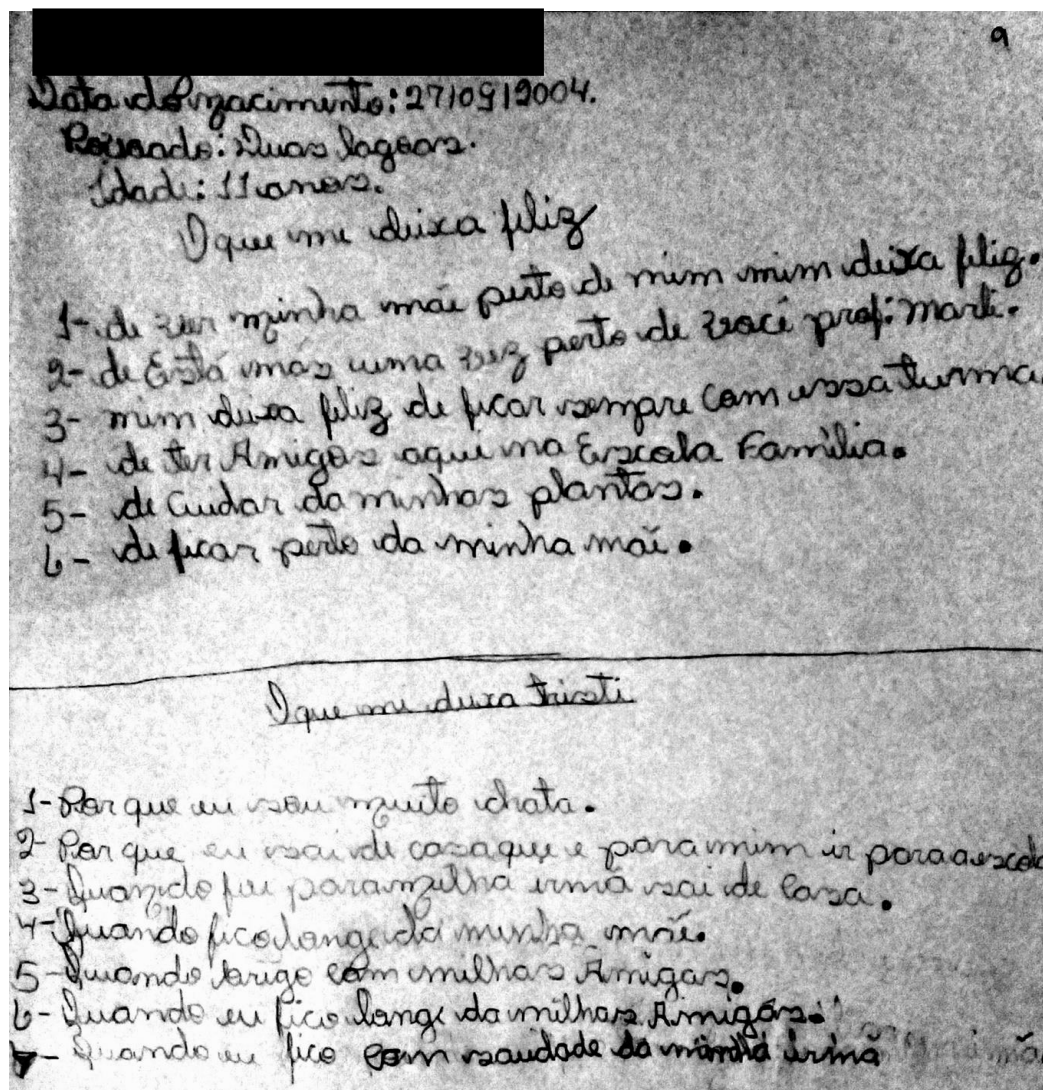 9
Data do nzacimento: 27/09/2004.
Povoado: Duas lagoas.
Idade: 11 anos.
O que me deixa feliz
1- de ver minha mãe perto de mim mim deixa feliz.
2- de Está mas uma vez perto de você prof: Marli.
3- mim deixa feliz de ficar sempre com essa turma.
4- de ter Amigos aqui na Escola Família.
5- de Cuidar da minhas plantas.
6- de ficar perto da minha mãe.
O que me deixa tristi
1- Por que eu sou muito chata.
2- Por que eu sai de casa que e para mim ir para a escola
3- Quando foi para milha irmã sai de Casa.
4- Quando fico longe da minha mãe.
5- Quando brigo com milhas Amigas.
6- Quando eu fico longe da milhas Amigas.
7- Quando eu fico com saudade da minha irmã